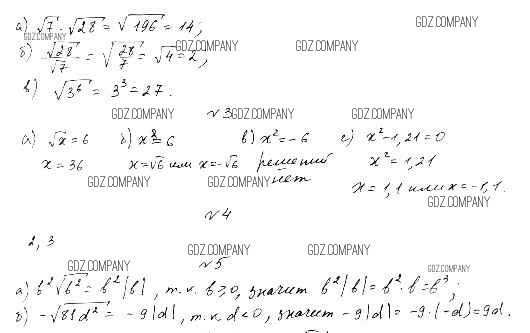 а) √7 · √28 = √196 = 14;
GDZ.COMPANY
GDZ.COMPANY
б) √28/√7 = √28/7 = √4 = 2;
GDZ.COMPANY GDZ.COMPANY
в) √3⁶ = 3³ = 27.
GDZ.COMPANY №3 GDZ.COMPANY GDZ.COMPANY
а) √x = 6 б) x² = 6 в) x² = -6 г) x² - 1,21 = 0
x = 36 x = √6 или x = -√6 решений x² = 1,21
GDZ.COMPANY GDZ.COMPANY нет
x = 1,1 или x = -1,1.
GDZ.COMPANY
№4
2, 3
GDZ.COMPANY GDZ.COMPANY
GDZ.COMPANY №5 GDZ.COMPANY
а) b²√b² = b²|b|, т.к. b ≥ 0, значит b²|b| = b² · b = b³;
б) -√81d² = -9|d|, т.к. d < 0, значит -9|d| = -9 · (-d) = 9d.